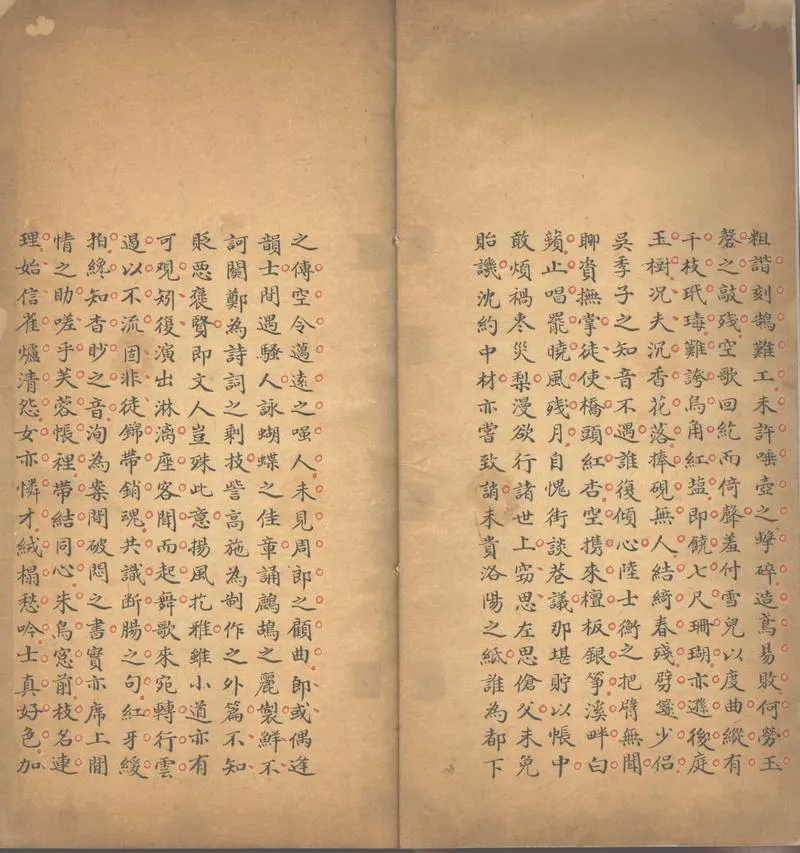 粗諧刻鵠難工未許唾壺之擊碎造鳶易敗何勞玉
磬之敲殘空歌回紇而倚聲羞付雪兒以度曲縱有
千枝玳瑇難誇烏角紅鹽即饒七尺珊瑚亦遜後庭
玉樹況夫沉香花落捧硯無人結綺春殘劈箋少侶
吳季子之知音不遇誰復傾心陸士衡之把臂無聞
聊資撫掌徒使橋頭紅杏空携來檀板銀箏溪畔白
蘋止唱罷曉風殘月自愧街談巷議那堪貯以帳中
敢煩禍枣災梨漫欲行諸世上窃思左思傖父未免
貽譏沈約中材亦嘗致誚未貴洛陽之紙誰為都下
之傳空令邁遠之嗤人未見周郎之顧曲即或偶逢
韻士閒遇騷人詠蝴蝶之佳章誦鷓鴣之麗製鮮不
訶關鄭為詩詞之剩技訾高施為制作之外篇不知
貶惡褒賢即文人豈殊此意揚風扢雅雖小道亦有
可观矧復演出淋漓座客聞而起舞歌來宛轉行雲
遏以不流固非徒錦帶銷魂共識断腸之句紅牙緩
拍纔知杳眇之音洵為案間破悶之書實亦席上閒
情之助嗟乎芙蓉帳裡帶結同心朱鳥窓前枝名連
理始信雀爐清怨女亦憐才絨榻愁吟士真好色加